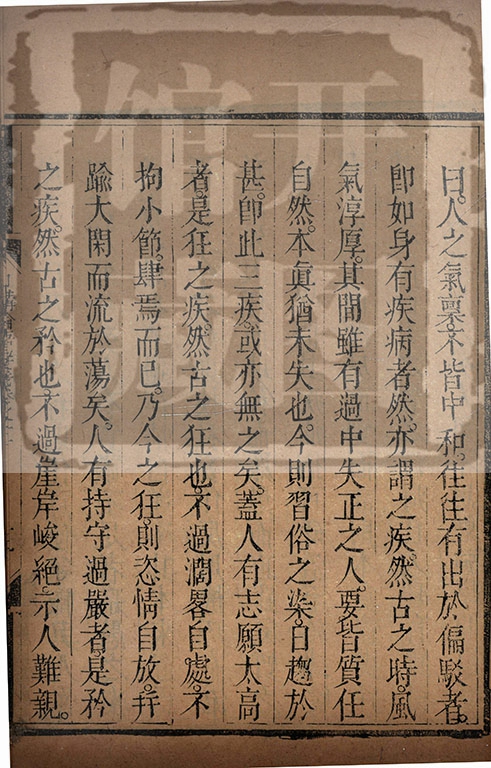 曰。人之氣稟。不皆中和。往往有出於偏駁者。
即如身有疾病者然。亦謂之疾。然古之時。風
氣淳厚。其間雖有過中失正之人。要皆質任
自然。本眞猶未失也。今則習俗之染。日趨於
甚。卽此三疾。或亦無之矣。蓋人有志願太高
者。是狂之疾。然古之狂也。不過濶畧自處。不
拘小節。肆焉而已。乃今之狂。則恣情自放。幷
踰大閑而流於蕩矣。人有持守過嚴者。是矜
之疾。然古之矜也。不過崖岸峻絕。示人難親。